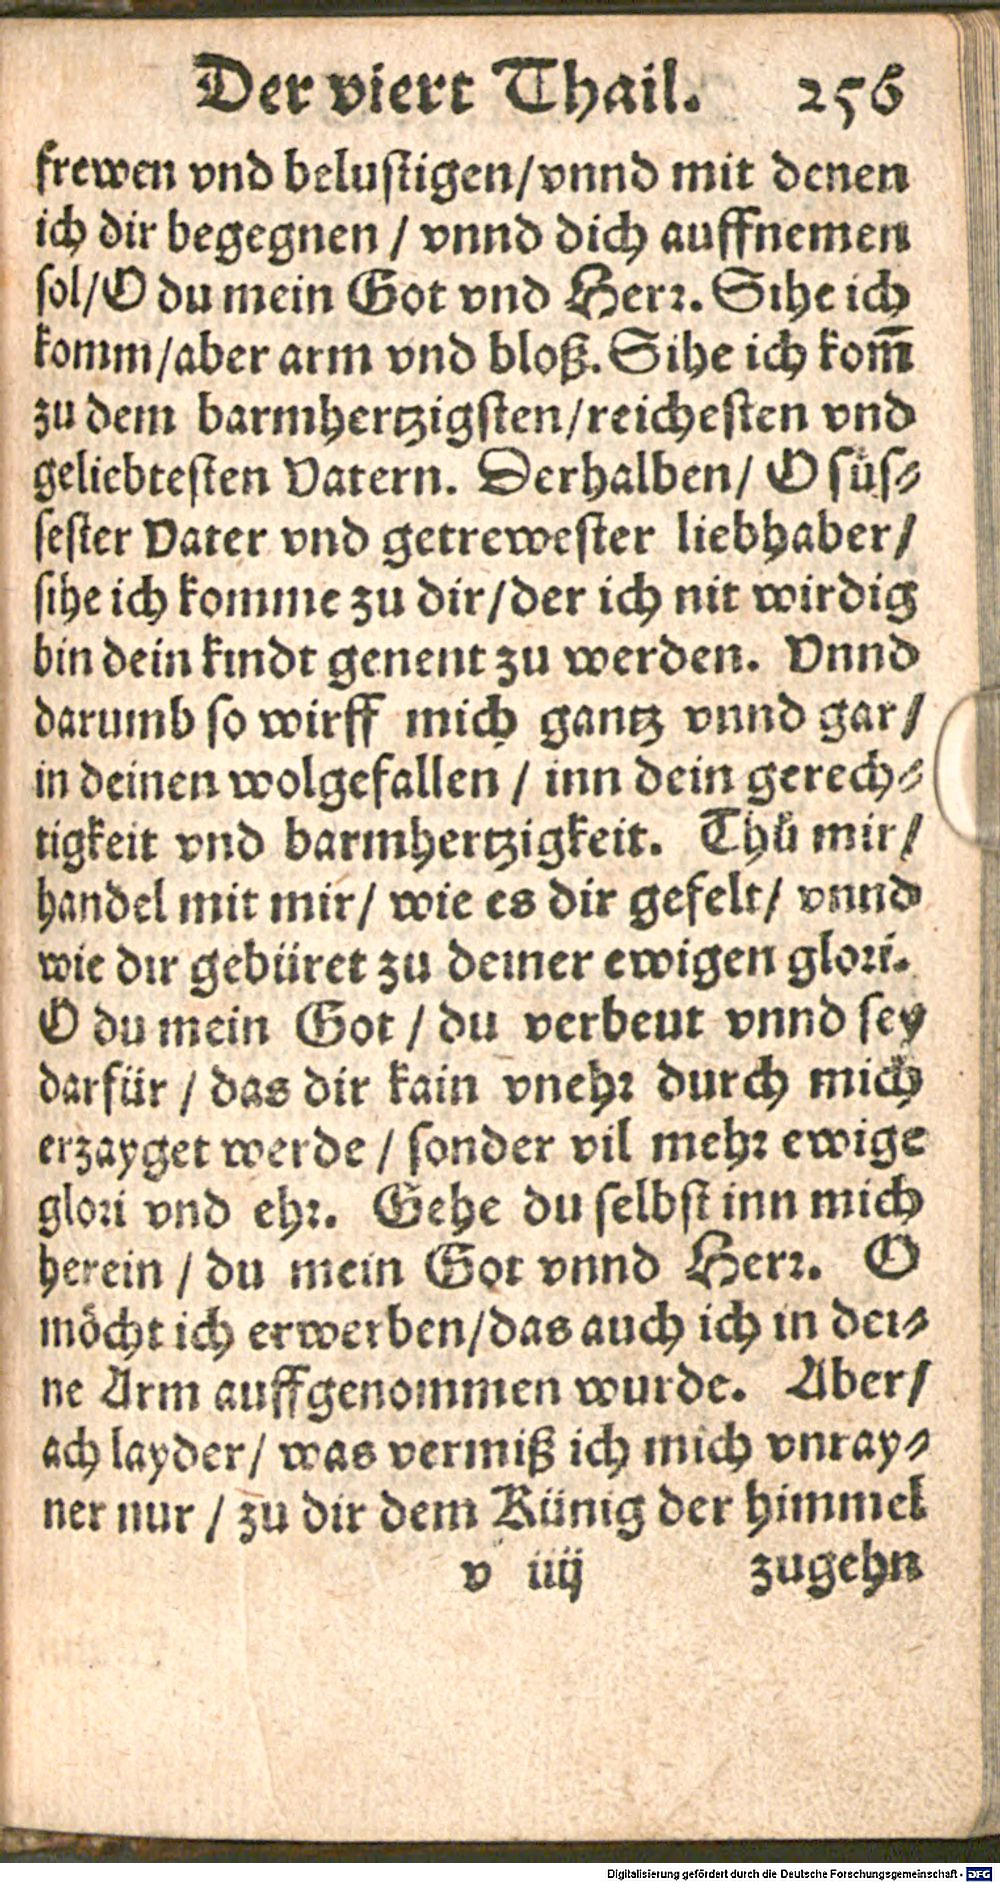 Der viert Thail. 256
frewen vnd belustigen/vnnd mit denen
ich dir begegnen / vnnd dich auffnemen
sol/O du mein Got vnd Herr. Sihe ich
komm/aber arm vnd bloß. Sihe ich kom̃
zu dem barmhertzigsten/reichesten vnd
geliebtesten Vatern. Derhalben/ O süs-
sester Vater vnd getrewester liebhaber/
sihe ich komme zu dir/der ich nit wirdig
bin dein kindt genent zu werden. Vnnd
darumb so wirff mich gantz vnnd gar/
in deinen wolgefallen / inn dein gerech-
tigkeit vnd barmhertzigkeit. Thů mir/
handel mit mir/ wie es dir gefelt/ vnnd
wie dir gebüret zu deiner ewigen glori.
O du mein Got / du verbeut vnnd sey
darfür / das dir kain vnehr durch mich
erzayget werde / sonder vil mehr ewige
glori vnd ehr. Gehe du selbst inn mich
herein / du mein Got vnnd Herr. O
möcht ich erwerben/das auch ich in dei-
ne Arm auffgenommen wurde. Aber/
ach layder/ was vermiß ich mich vnray-
ner nur / zu dir dem Künig der himmel
v iiij zugehn
Digitalisierung gefördert durch die Deutsche Forschungsgemeinschaft - DFG